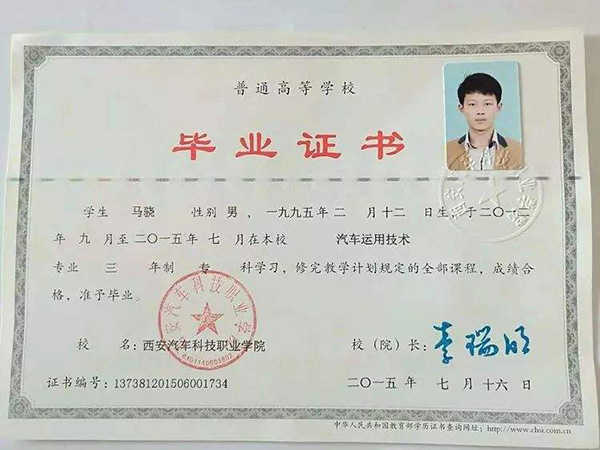 普通高等学校
毕业证书
学生 马骁 性别 男，一九九五年 二 月 十二 日生，于二〇一二
年 九 月至二〇一五年 七 月在本校 汽车运用技术
专业 三 年制 专 科学习，修完教学计划规定的全部课程，成绩合
格，准予毕业。
校 名：西安汽车科技职业学院
校（院）长：李瑞明
证书编号：137381201506001734
二〇一五年 七 月 十六 日
中华人民共和国教育部学历证书查询网址：http://www.chsi.com.cn